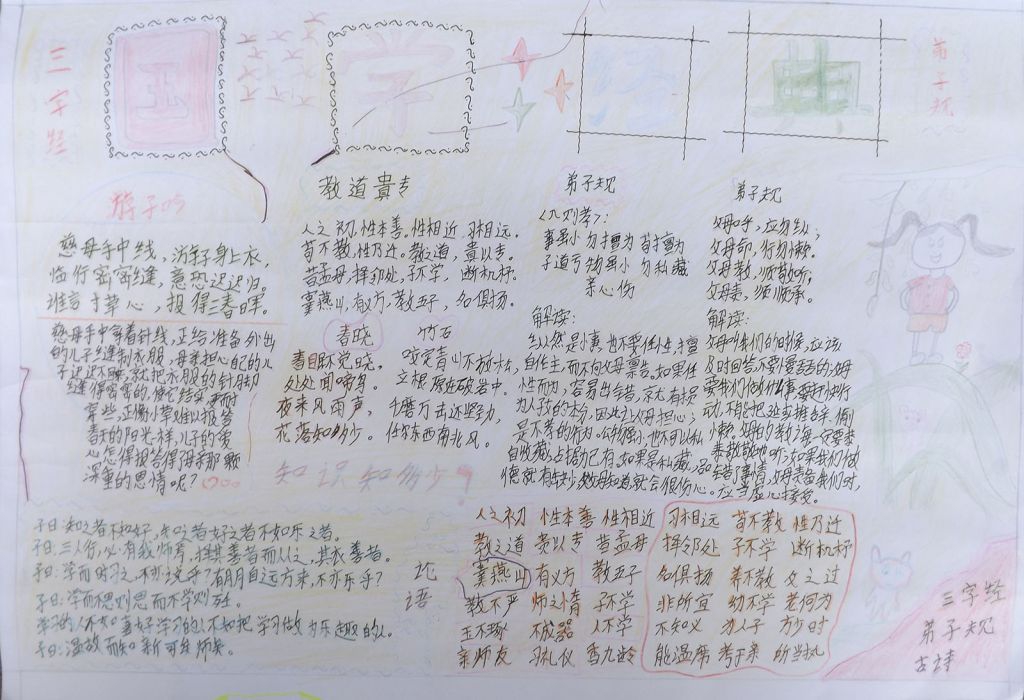 三字经
国
学
经
典
弟子规
游子吟
慈母手中线，游子身上衣，
临行密密缝，意恐迟迟归。
谁言寸草心，报得三春晖。
慈母手中拿着针线，正给准备外出
的儿子缝制衣服，母亲担心自己的儿
子迟迟不回，就把衣服的针脚
缝得密密的，
草些，正像小草难以报答
春天的阳光一样，儿子的爱
心怎得报答得了母亲那颗
深重的思情呢？
教道貴专
人之初，性本善。性相近，习相远。
苟不教，性乃迁。教之道，贵以专。
昔孟母，择邻处，子不学，断机杼。
窦燕山，有义方，教五子，名俱扬。
春晓
春眠不觉晓，
处处闻啼鸟。
夜来风雨声，
花落知多少。
竹石
咬定青山不放松，
立根原在破岩中。
千磨万击还坚劲，
任尔东西南北风。
知识知多少？
弟子规
入则孝：
事虽小 勿擅为 苟擅为
子道亏 物虽小 勿私藏
亲心伤
解读：
纵然是小事，也不要任性，擅
自作主，而不向父母禀告。如果任
性而为，容易出错，就有损
为人子的本分，因此让父母担心，
是不孝的行为。公物虽小，也不可以私
自收藏，占据己有。如果是私藏，品
德就有缺失，父母知道就会很伤心。
弟子规
父母呼，应勿缓；
父母命，行勿懒。
父母教，须敬听；
父母责，须顺承。
解读：
父母叫我们的时候，应该
及时回答不要慢吞吞的，父母
要我们做什么事，要赶快行
动，不能拖延或推辞，偷
懒。父母的教诲一定要恭
恭敬敬地听；如果我们做
错了事情，父母责备我们时，
应当虚心接受。
子曰：知之者不如好，知之者好之者不如乐之者。
子曰：三人行，必有我师焉，择其善者而从之，其衣善者。
子曰：学而时习之，不亦说乎？有朋自远方来，不亦乐乎？
子曰：学而不思则思而不学则
学习的人不如喜好学习的人不如把学习做为乐趣的人。
子曰：温故而知新可以师矣。
语
人之初 性本善 性相近 习相远 苟不教 性乃迁
教之道 贵以专 昔孟母 择邻处 子不学 断机杼
窦燕山 有义方 教五子 名俱扬 养不教 父之过
教不严 师之惰 子不学 非所宜 幼不学 老何为
玉不琢 不成器 人不学 不知义 为人子 方少时
亲师友 习礼仪 香九龄 能温席 孝于亲 所当执
三字经
弟子规
古诗